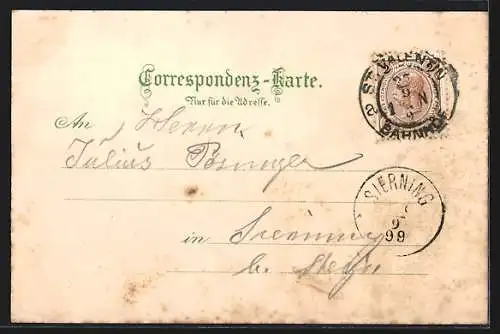 Correspondenz-Karte.
Nur für die Adresse.
ST. VALENTIN
BAHNHOF
An Herrn
Julius
SIERNING
99
in Sierning
b. Steyr